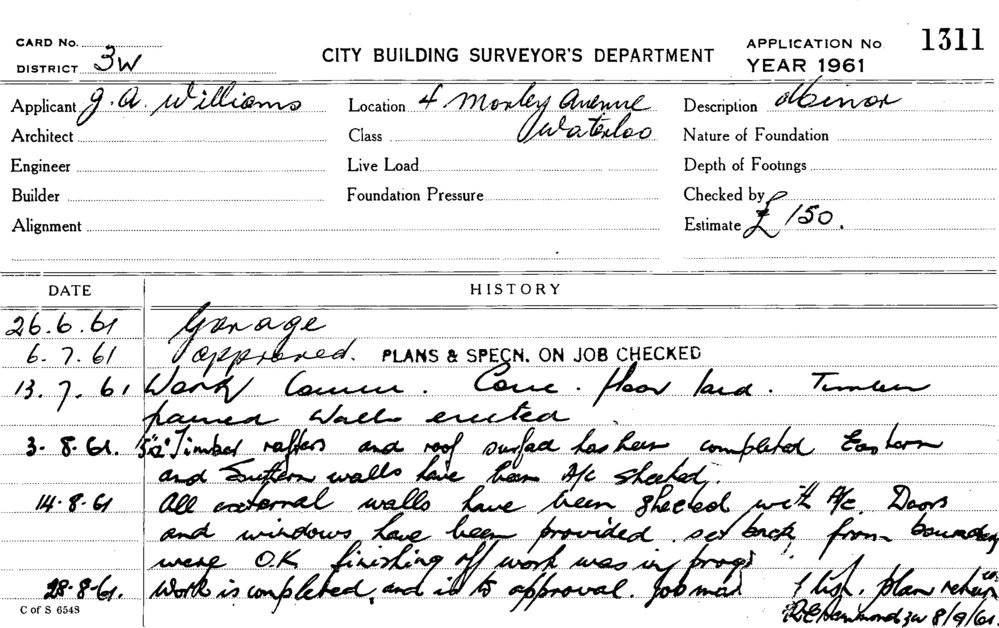 CARD No.
DISTRICT 3W
CITY BUILDING SURVEYOR'S DEPARTMENT
APPLICATION No 1311
YEAR 1961
Applicant J. A. Williams
Location 4 Morley Avenue
Waterloo
Description Minor
Architect
Class
Nature of Foundation
Engineer
Live Load
Depth of Footings
Builder
Foundation Pressure
Checked by
Alignment
Estimate £ 150.
DATE HISTORY
26.6.61 Garage
6.7.61 approved. PLANS & SPECN. ON JOB CHECKED
13.7.61 Work Comm. Conc. floor laid. Timber
framed walls erected
3.8.61. Timber rafters and roof surfad has been completed Eastern
and Southern walls have been A/c sheeted.
14.8.61 All external walls have been sheeted with A/c. Doors
and windows have been provided. set back from boundary
were O.K finishing off work was in prog
28.8.61. Work is completed, and is to approval. Job plan
8/9/61.
C of S 6548